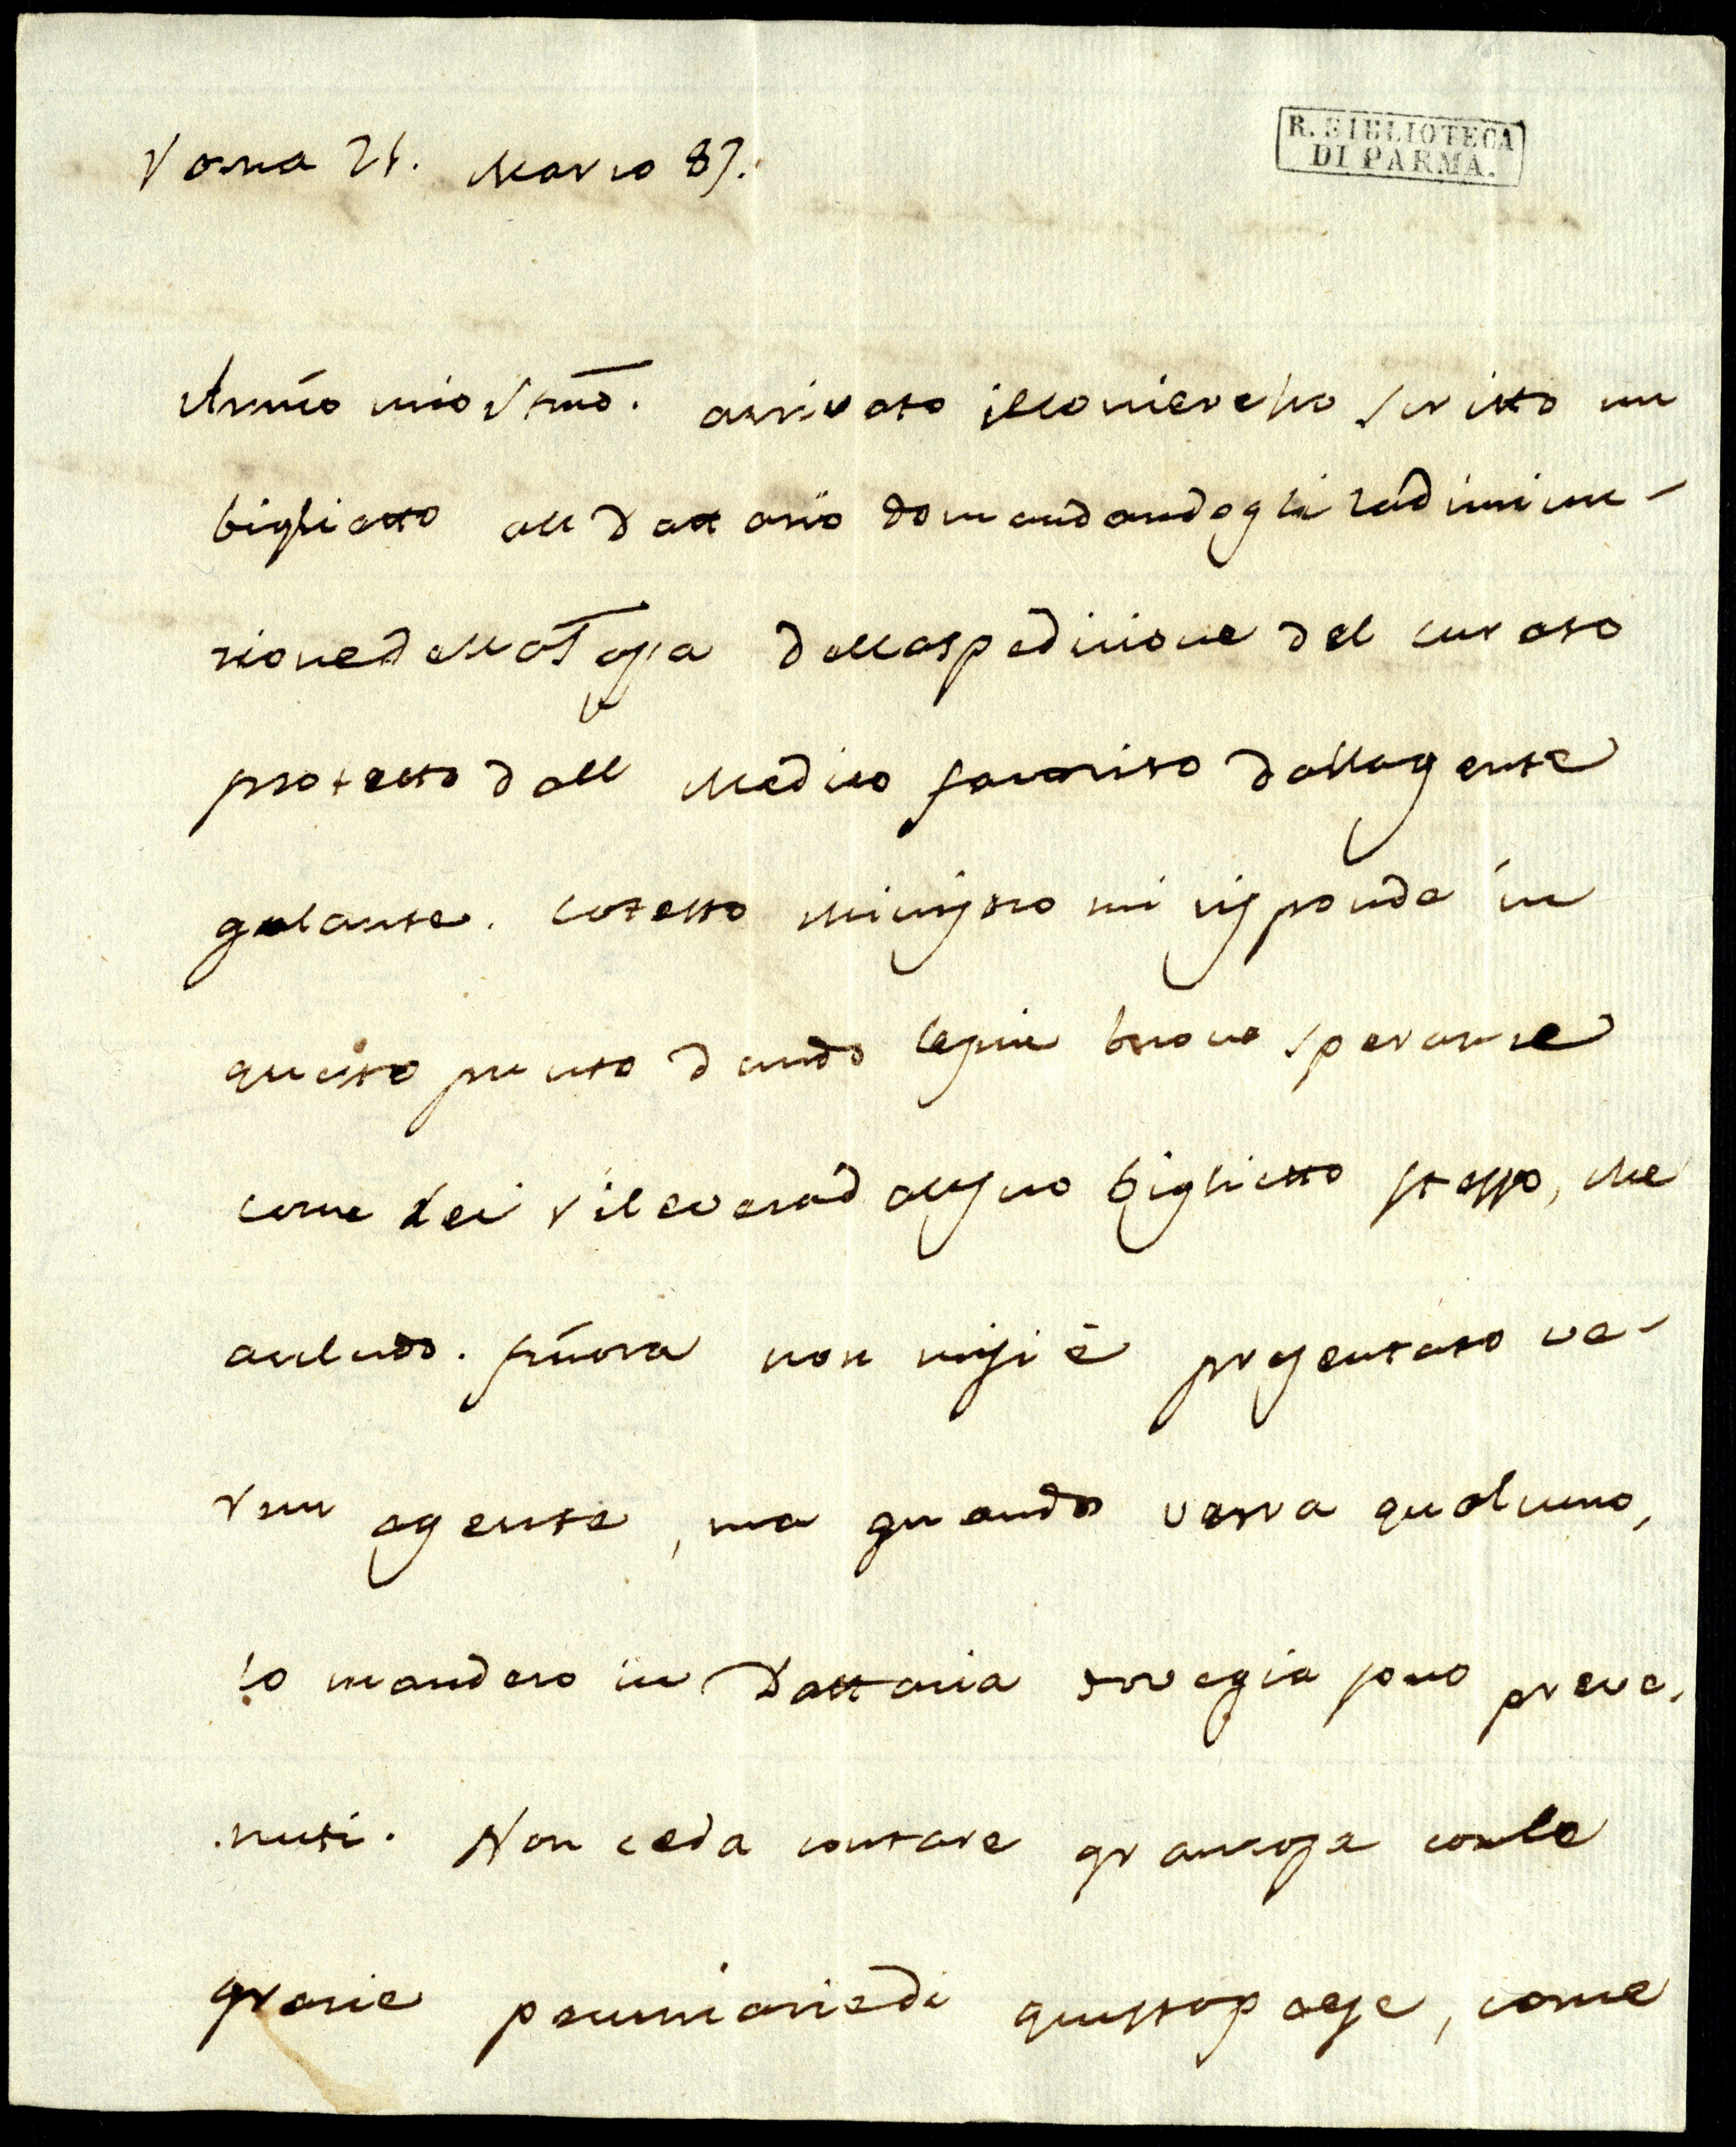 Roma 21. Marzo 87.
R. BIBLIOTECA
DI PARMA.
Amico mio Stmo. arrivato il corriere ho scritto un
biglietto all Dattario domandandogli la diminu-
zione della Tassa della spedizione del curato
protetto dall Medico favorito dalla gente
galante. cotesto Ministro mi risponde in
questo punto dando le piu buone speranze
come Lei rileverà dall suo biglietto stesso, che
acchiudo. finora non mi si è presentato ve-
run agente, ma quando verra qualcuno,
lo mandero in Dattaria dove gia sono preve-
nuti. Non ceda contare gran cosa con le
grazie pecuniarie di questo paese, come